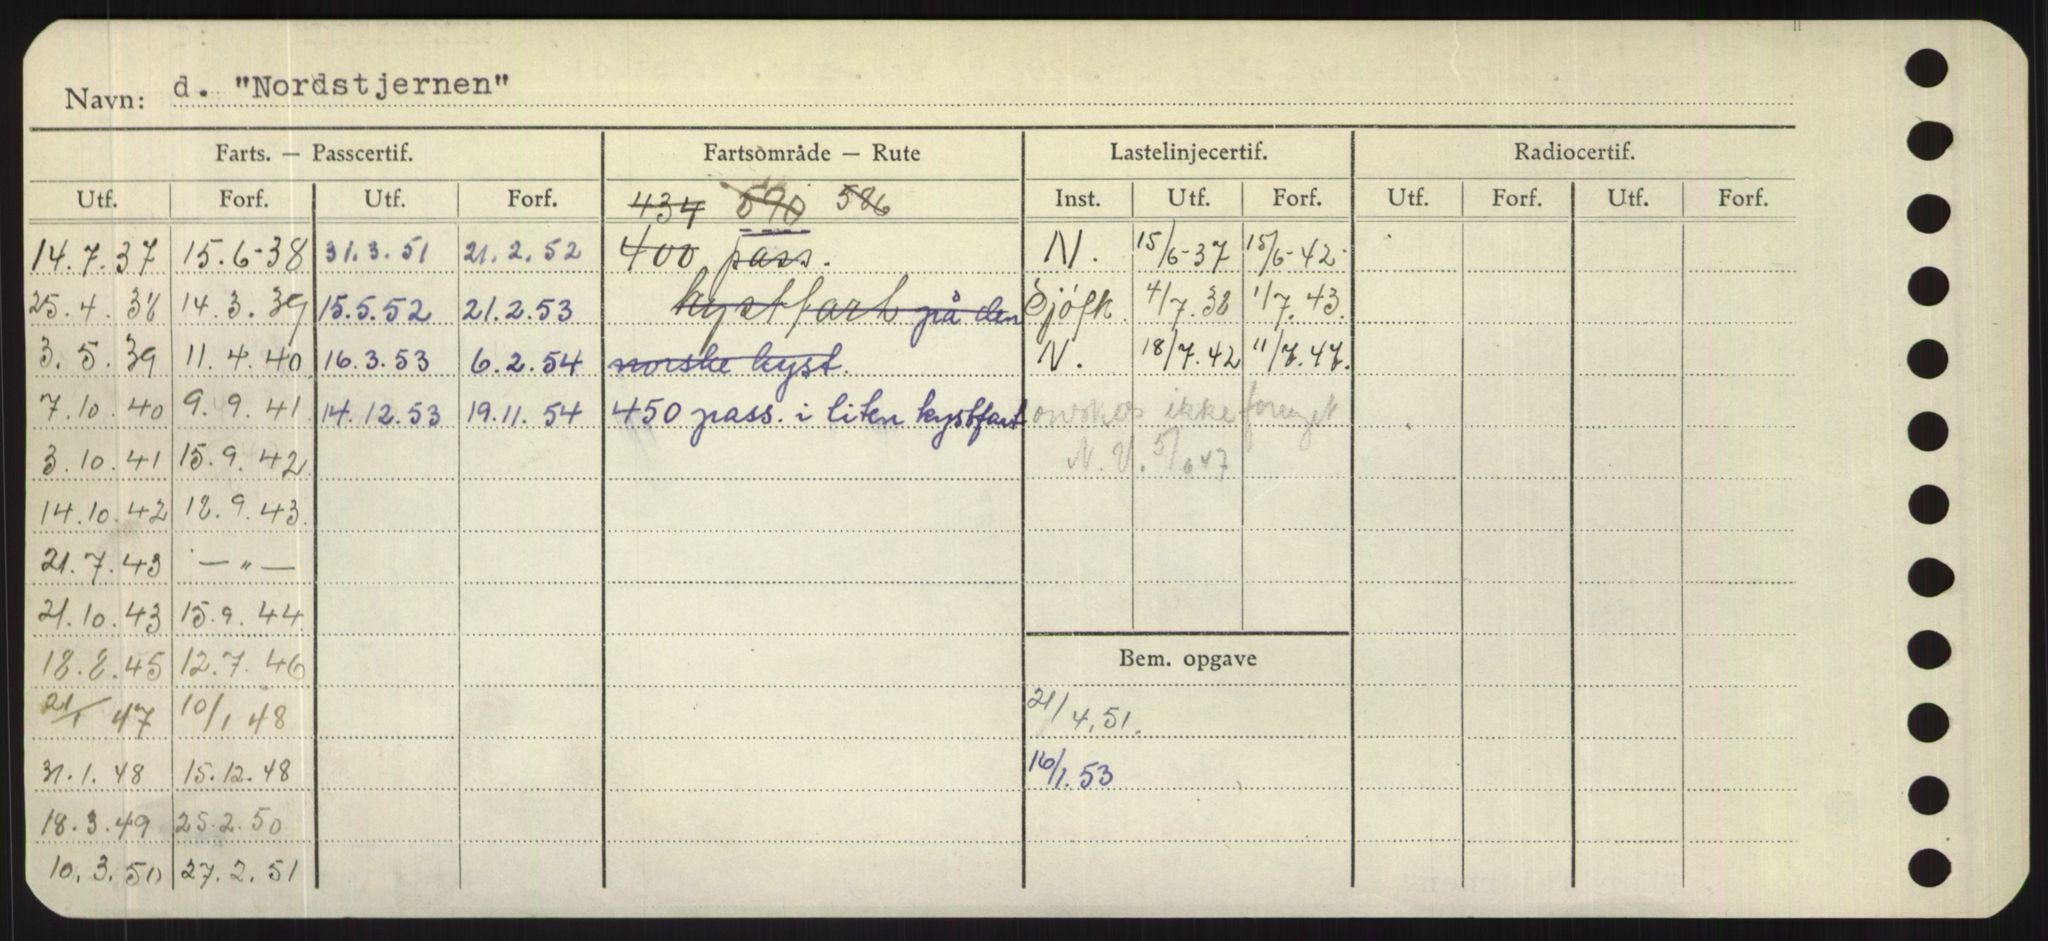 Navn: d. "Nordstjernen"
Farts. — Passcertif. Fartsområde — Rute Lastelinjecertif. Radiocertif.
Utf. Forf. Utf. Forf. 434 690 586 Inst. Utf. Forf. Utf. Forf. Utf. Forf.
14.7.37 15.6-38 31.3.51 21.2.52 400 pass. N. 15/6-37 15/6-42
25.4.38 14.3.39 15.5.52 21.2.53 kystfart på den Sjöfk. 4/7.38 1/7.43.
3.5.39 11.4.40 16.3.53 6.2.54 norske kyst. N. 18/7.42 11/7.47.
7.10.40 9.9.41 14.12.53 19.11.54 450 pass. i liten kystfart ønskes ikke fornyet
3.10.41 15.9.42 N.V. 5/6 47
14.10.42 18.9.43.
21.7.43 — " —
21.10.43 15.9.44
18.8.45 12.7.46
Bem. opgave
21/1 47 10/1 48 21/4.51.
31.1.48 15.12.48 16/1.53
18.3.49 25.2.50
10.3.50 27.2.51